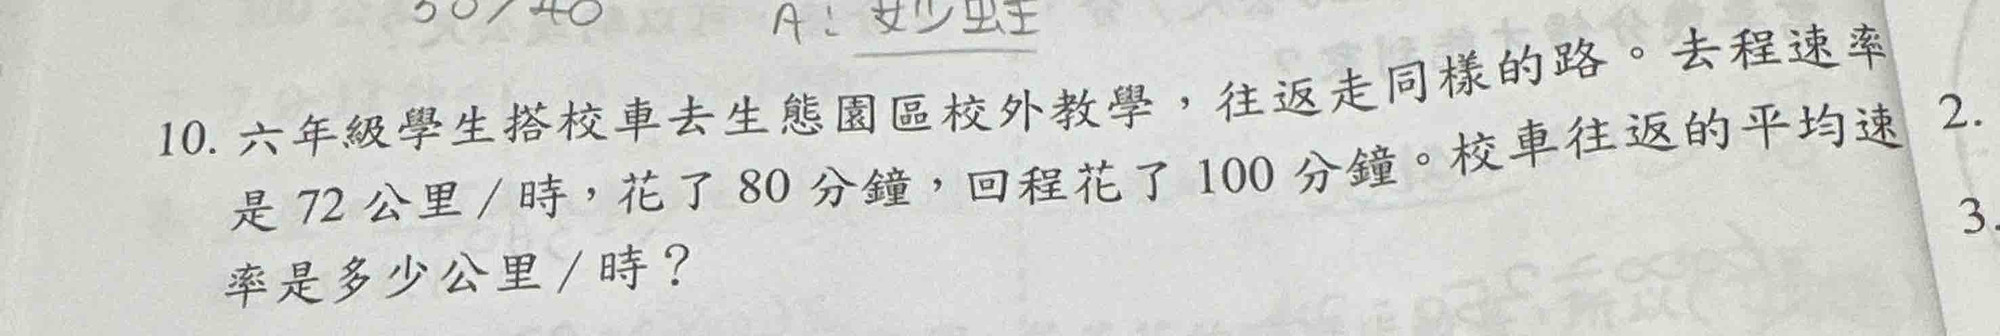 50/40 A:妙蛙
10. 六年級學生搭校車去生態園區校外教學，往返走同樣的路。去程速率
是 72 公里/時，花了 80 分鐘，回程花了 100 分鐘。校車往返的平均速
率是多少公里/時？
2.
3.